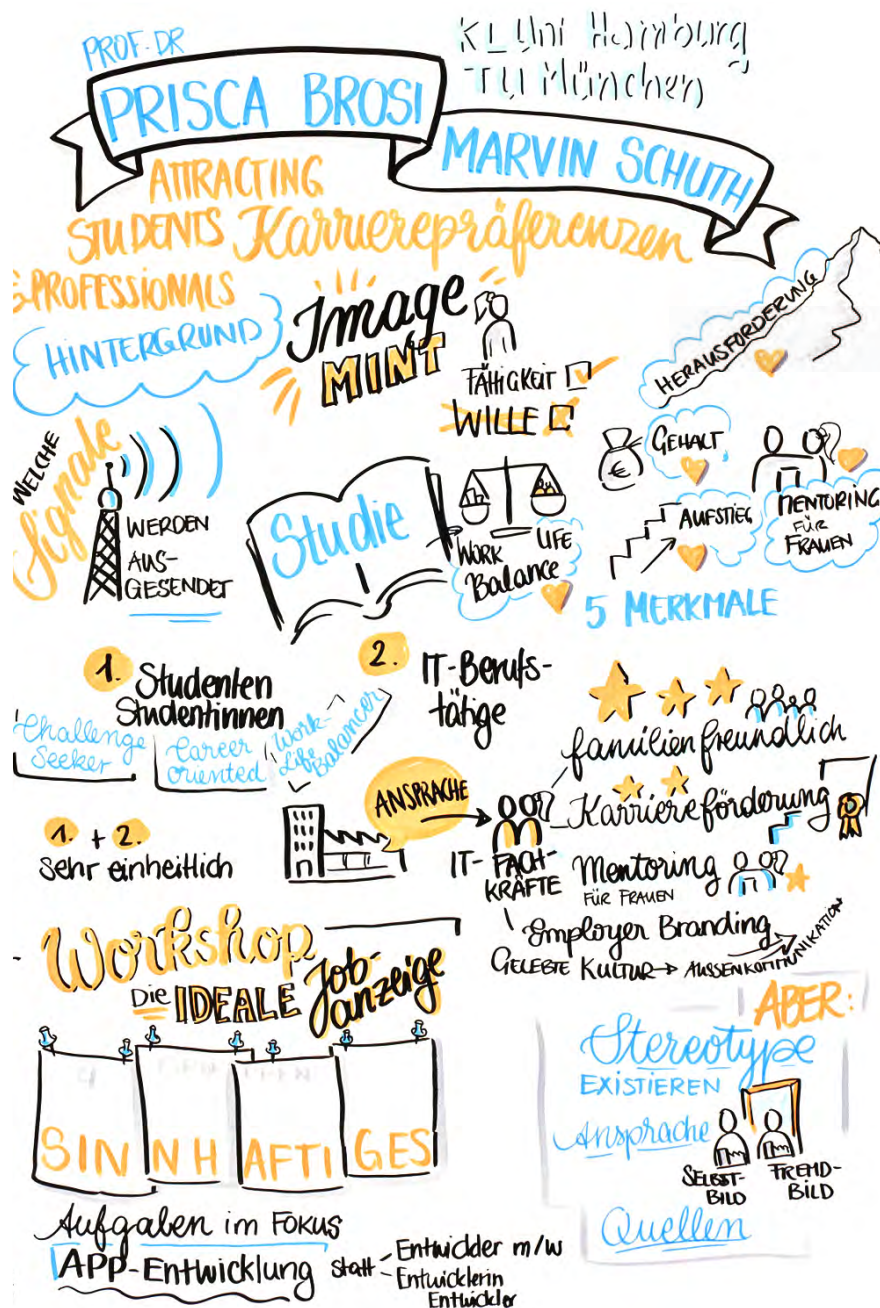 PROF. DR
KL Uni Hamburg
TU München
PRISCA BROSI
MARVIN SCHUTH
ATTRACTING
STUDENTS
& PROFESSIONALS
Karrierepräferenzen
HINTERGRUND
Image
MINT
FÄHIGKEIT
WILLE
HERAUSFORDERUNG
WELCHE
Signale
WERDEN
AUS-
GESENDET
Studie
WORK
LIFE
Balance
€
GEHALT
AUFSTIEG
MENTORING
FÜR
FRAUEN
5 MERKMALE
1. Studenten
Studentinnen
Challenge
Seeker
Career
oriented
Work-
Life
Balancer
2. IT-Berufs-
tätige
1. + 2.
Sehr einheitlich
ANSPRACHE
IT-FACH-
KRÄFTE
familienfreundlich
Karriereförderung
Mentoring
FÜR FRAUEN
Employer Branding
GELEBTE KULTUR → AUSSENKOMMUNIKATION
Workshop
Die IDEALE Job-
anzeige
SINNHAFTIGES
Aufgaben im FOKUS
APP-Entwicklung statt
- Entwickler m/w
- Entwicklerin
Entwickler
ABER:
Stereotype
EXISTIEREN
Ansprache
SELBST-
BILD
FREMD-
BILD
Quellen